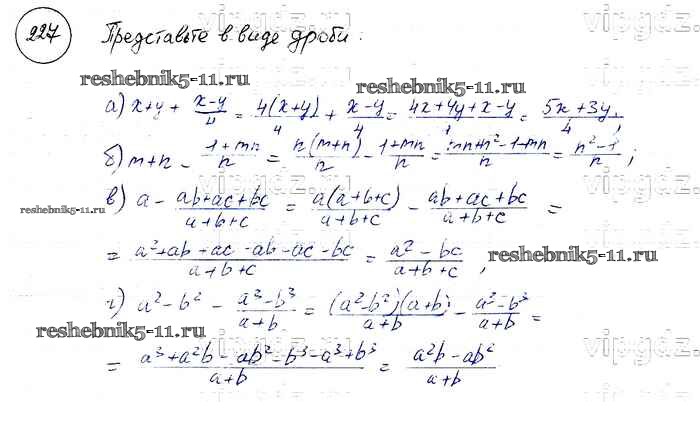 227 Представьте в виде дроби:
vipgdz.ru
reshebnik5-11.ru
reshebnik5-11.ru
а) x+y + (x-y)/4 = 4(x+y)/4 + (x-y)/4 = (4x+4y+x-y)/4 = (5x+3y)/4;
б) m+n - (1+mn)/n = n(m+n)/n - (1+mn)/n = (mn+n²-1-mn)/n = (n²-1)/n;
reshebnik5-11.ru
в) a - (ab+ac+bc)/(a+b+c) = a(a+b+c)/(a+b+c) - (ab+ac+bc)/(a+b+c) =
= (a²+ab+ac-ab-ac-bc)/(a+b+c) = (a²-bc)/(a+b+c);
reshebnik5-11.ru
г) a²-b² - (a³-b³)/(a+b) = (a²-b²)(a+b)/(a+b) - (a³-b³)/(a+b) =
reshebnik5-11.ru
= (a³+a²b-ab²-b³-a³+b³)/(a+b) = (a²b-ab²)/(a+b)
vipgdz.ru